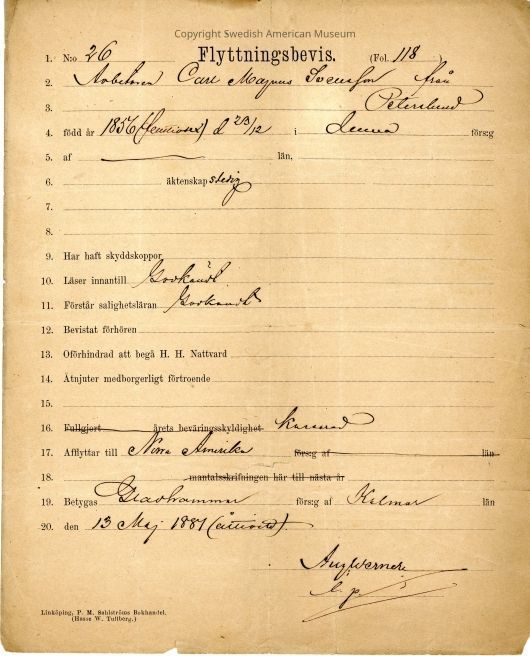 Copyright Swedish American Museum
1. N:o 26 Flyttningsbevis. (Fol. 118)
2. Arbetaren Carl Magnus Svensson från
3. Peterslund
4. född år 1856 (femtiosex) d 23/12 i denna förs:g
5. af län,
6. äktenskap ledig
7.
8.
9. Har haft skyddskoppor
10. Läser innantill Godkändt
11. Förstår salighetsläran Godkändt
12. Bevistat förhören
13. Oförhindrad att begå H. H. Nattvard
14. Åtnjuter medborgerligt förtroende
15.
16. Fullgjort årets beväringsskyldighet
17. Afflyttar till Norra Amerika förs:g af län
18. mantalsskrifningen här till nästa år
19. Betygas Gladhammar förs:g af Kalmar län
20. den 13 Maj 1881 (åttioett).
Aug Werner
Linköping, P. M. Sahlströms Bokhandel.
(Hasse W. Tullberg.)